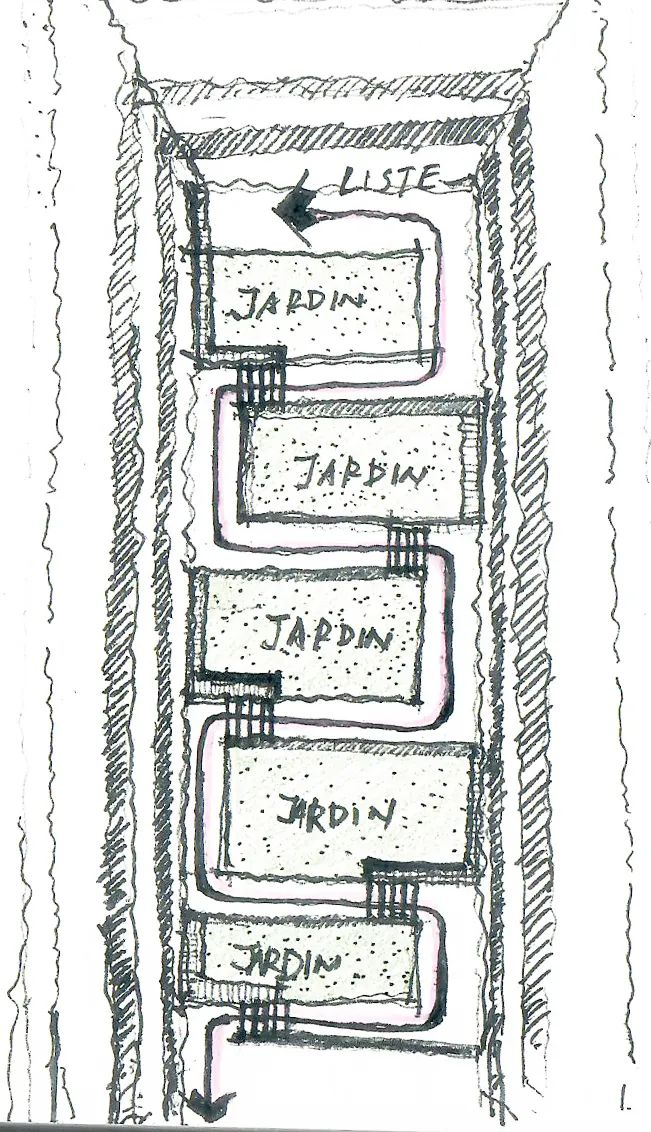 LISTE
JARDIN
JARDIN
JARDIN
JARDIN
JARDIN